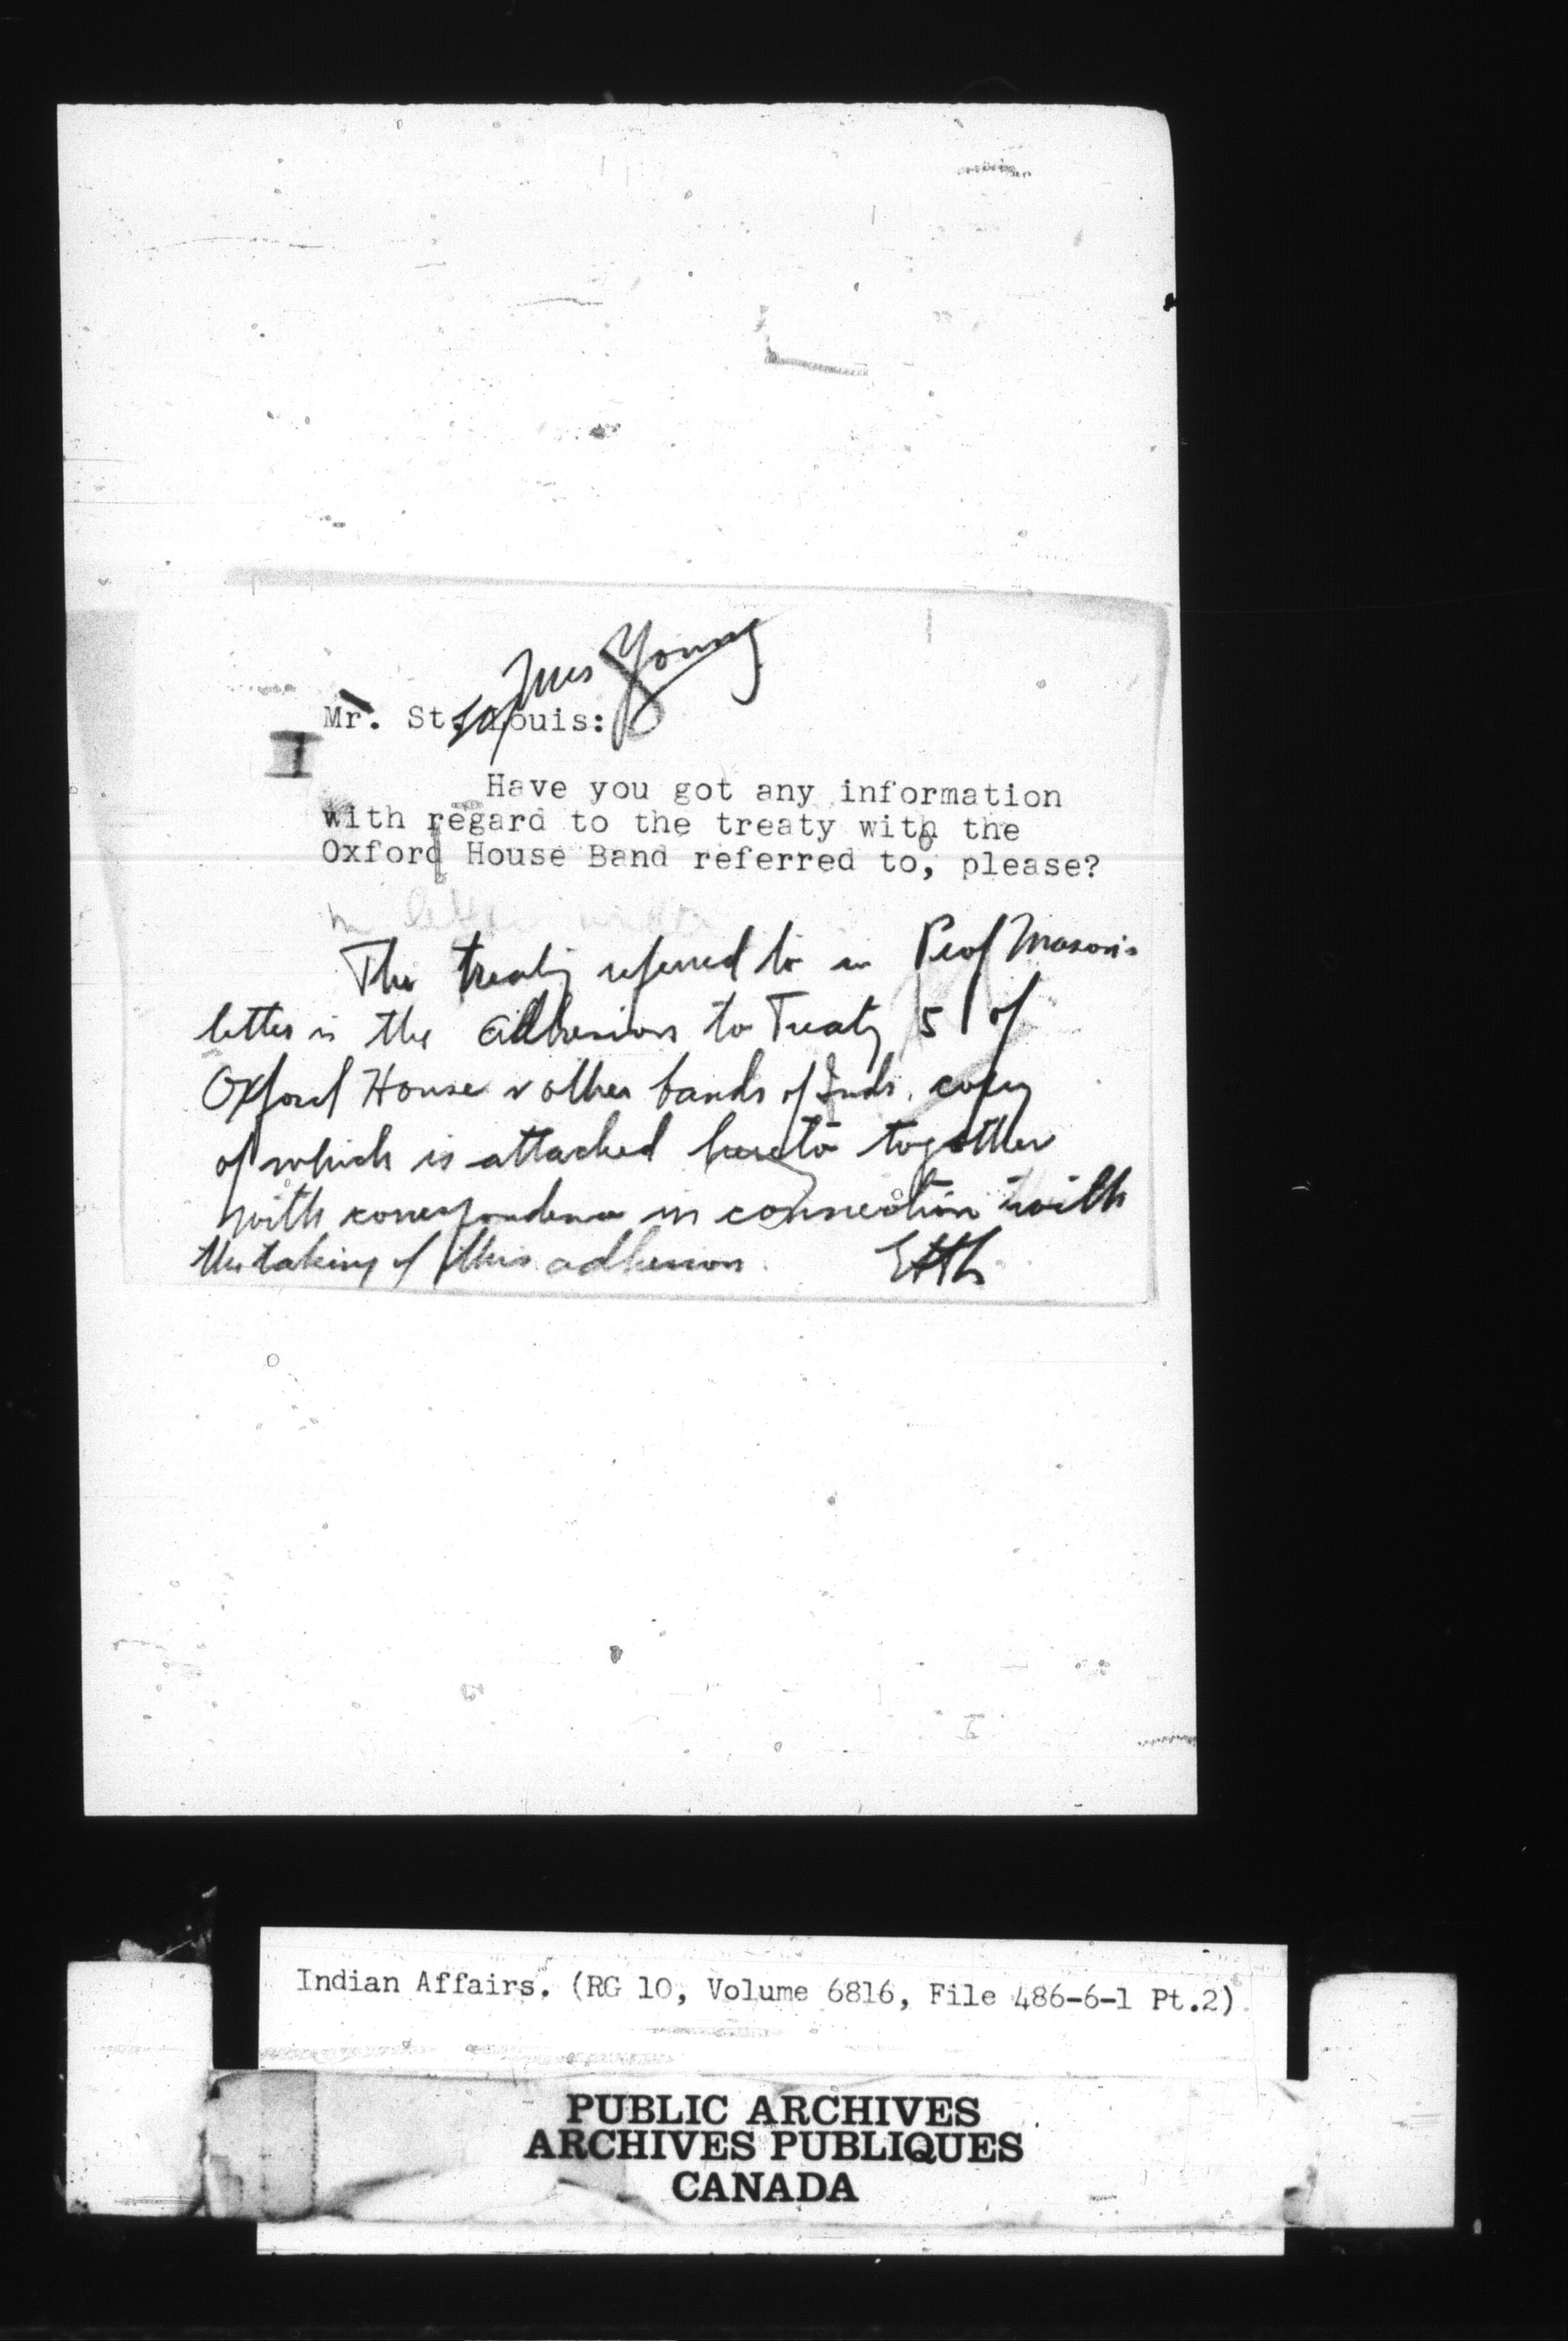 Miss Young
Mr. St. Louis:
Have you got any information
with regard to the treaty with the
Oxford House Band referred to, please?
in letter
The treaty referred to in Prof Mason's
letter is the adhesions to Treaty 5 of
Oxford House & other bands of Inds. copy
of which is attached hereto together
with correspondence in connection with
the taking of this adhesion.
Indian Affairs. (RG 10, Volume 6816, File 486-6-1 Pt.2)
PUBLIC ARCHIVES
ARCHIVES PUBLIQUES
CANADA